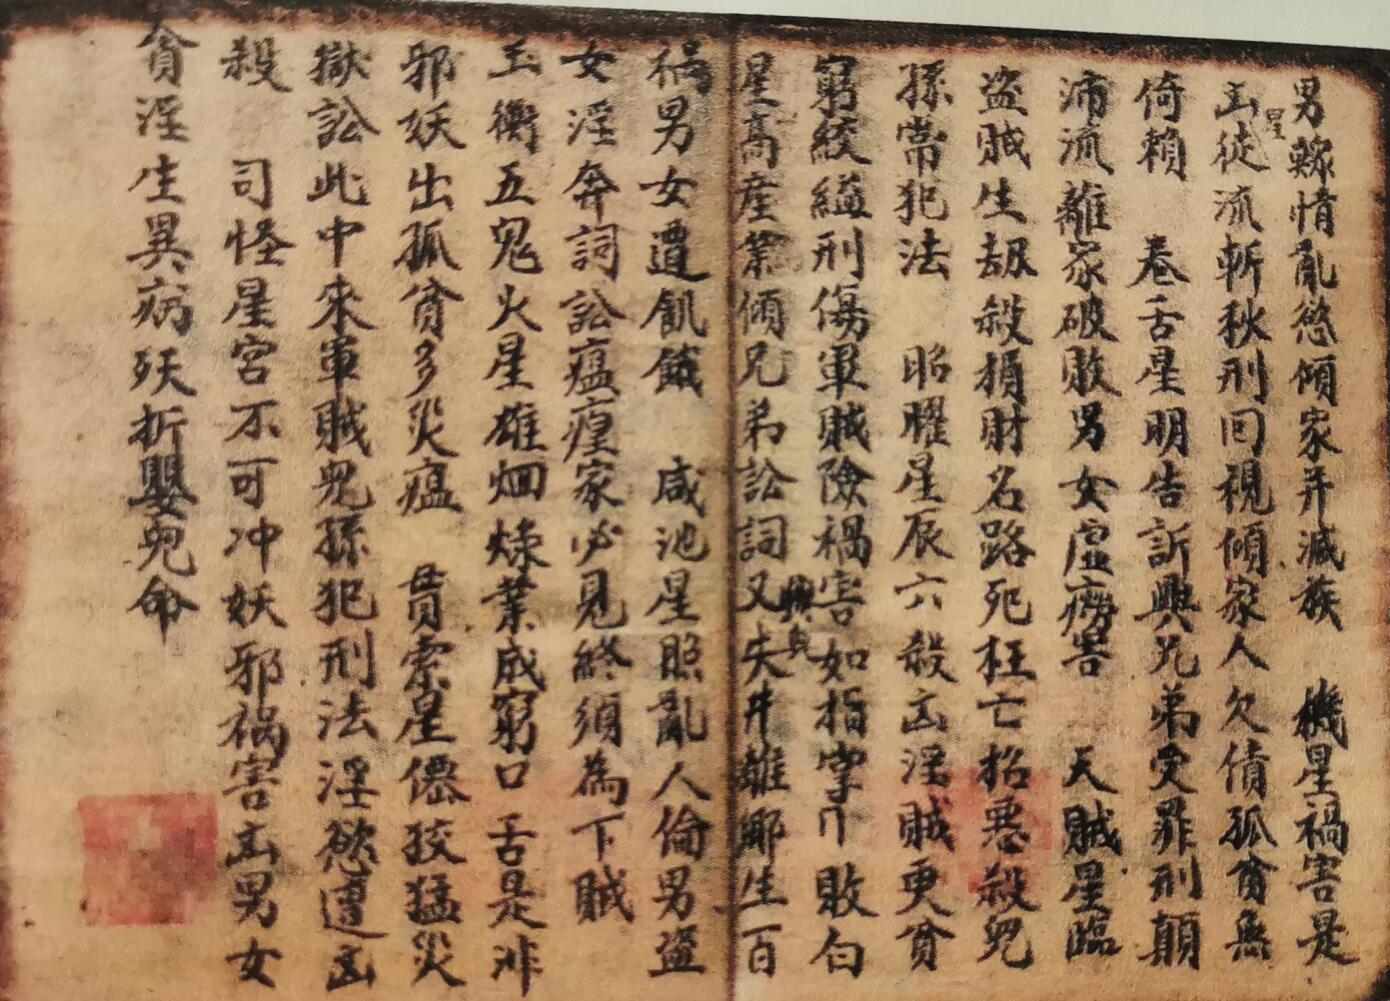 男報情亂慾傾家并滅族　機星禍害是
凶徒流斬秋刑回視傾家人欠債孤貧無
星
倚賴　卷舌星明告訴興兄弟受罪刑顛
沛流離家破敗男女虛癆害　天賊星臨
盜賊生劫殺損財名路死枉亡招惡殺兒
孫常犯法　昭曜星辰六殺凶淫賊更貧
窮絞縊刑傷軍賊險禍害如指掌　敗勾
星高産業傾兄弟訟詞又失井離鄉生百
禍男女遭飢餓　咸池星照亂人倫男盜
女淫奔詞訟瘟瘟家必見終須為下賊
玉衡五鬼火星雄烟煉業成窮口舌是非
邪妖出孤貧多災瘟　貫索星優狡猛災
獄訟此中來軍賊兒孫犯刑法淫慾遭凶
殺　司怪星宮不可冲妖邪禍害凶男女
貪淫生異病殀折嬰兒命